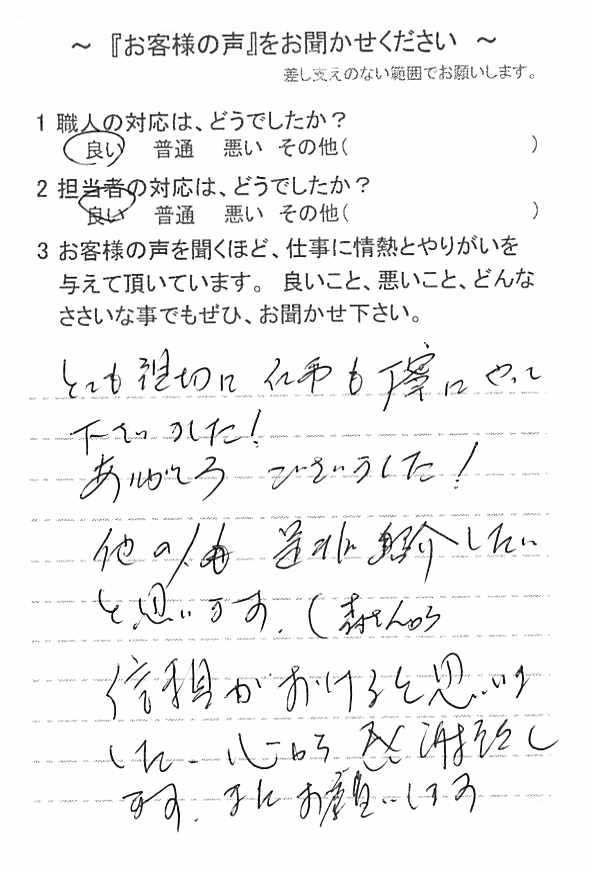 ～ 『お客様の声』をお聞かせください ～
差し支えのない範囲でお願いします。
1 職人の対応は、どうでしたか？
良い 普通 悪い その他( )
2 担当者の対応は、どうでしたか？
良い 普通 悪い その他( )
3 お客様の声を聞くほど、仕事に情熱とやりがいを
与えて頂いています。 良いこと、悪いこと、どんな
ささいな事でもぜひ、お聞かせ下さい。
とても親切に 仕事も 丁寧に やって
下さいました！
ありがとう ございました！
他の 是非 紹介したい
と思います。(森さんから
信頼がおけると思いま
した。心から 感謝致し
ます。またお願いします